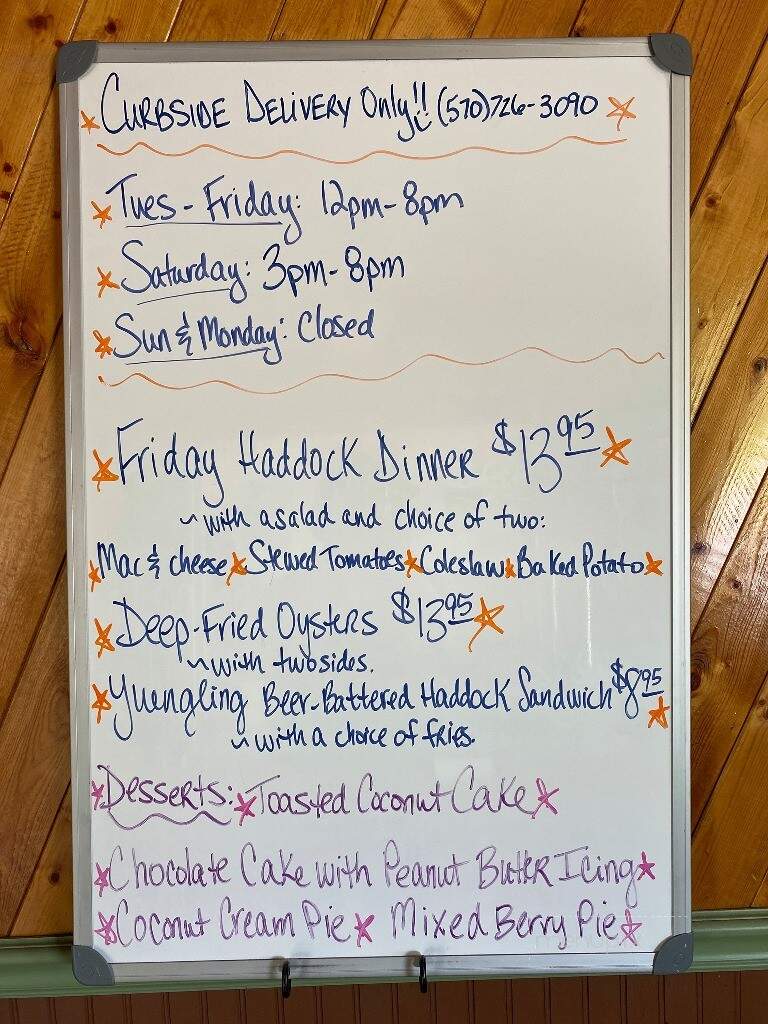 Curbside Delivery Only!! (570)726-3090
Tues - Friday: 12pm-8pm
Saturday: 3pm-8pm
Sun & Monday: Closed
Friday Haddock Dinner $13.95
~with a salad and choice of two:
Mac & cheese Stewed Tomatoes Coleslaw Baked Potato
Deep-Fried Oysters $13.95
~with two sides.
Yuengling Beer-Battered Haddock Sandwich $8.95
~with a choice of fries.
Desserts: Toasted Coconut Cake
Chocolate Cake with Peanut Butter Icing
Coconut Cream Pie Mixed Berry Pie